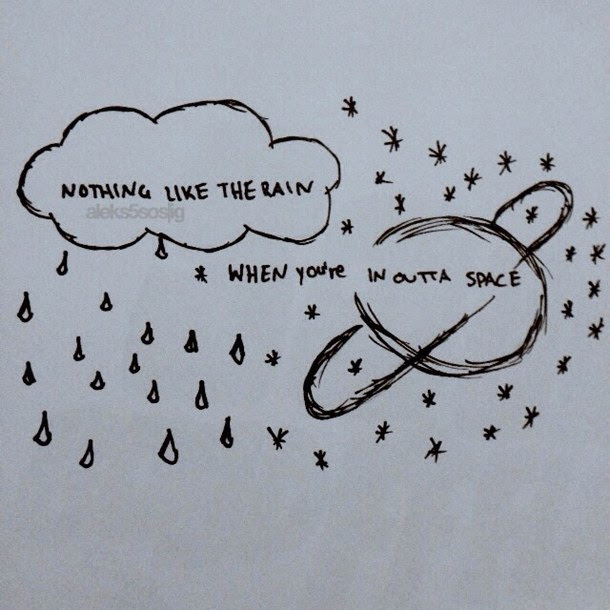 NOTHING LIKE THE RAIN
aleks5sosjig
WHEN you're IN OUTTA SPACE